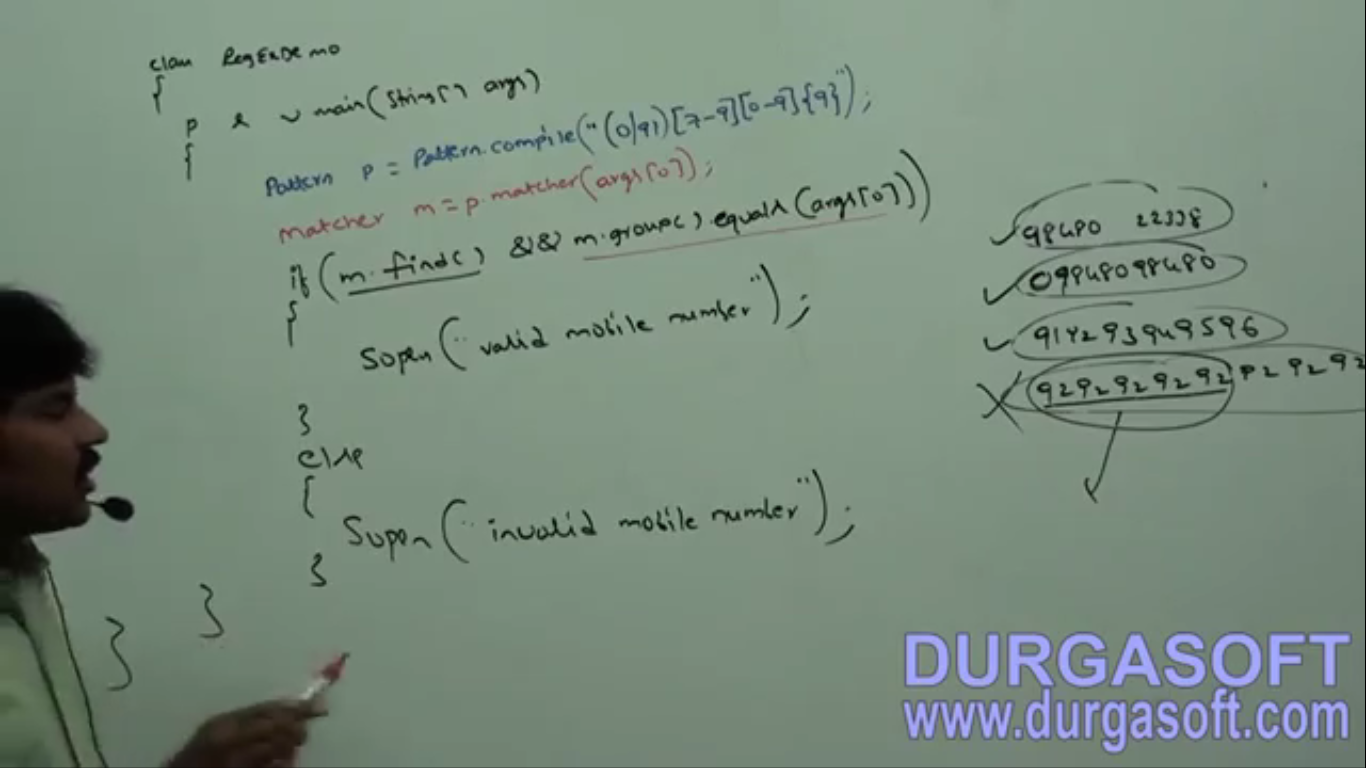 class RegExDemo
{
p s v main(String[] args)
{
Pattern p = Pattern.compile("(0|91)[7-9][0-9]{9}");
Matcher m=p.matcher(args[0]);
if(m.find() && m.group().equals(args[0]))
{
Sopln("valid mobile number");
}
else
{
Sopln("invalid mobile number");
}
}
}
98480 22338
09848098480
919293949596
9292929292929292
DURGASOFT
www.durgasoft.com